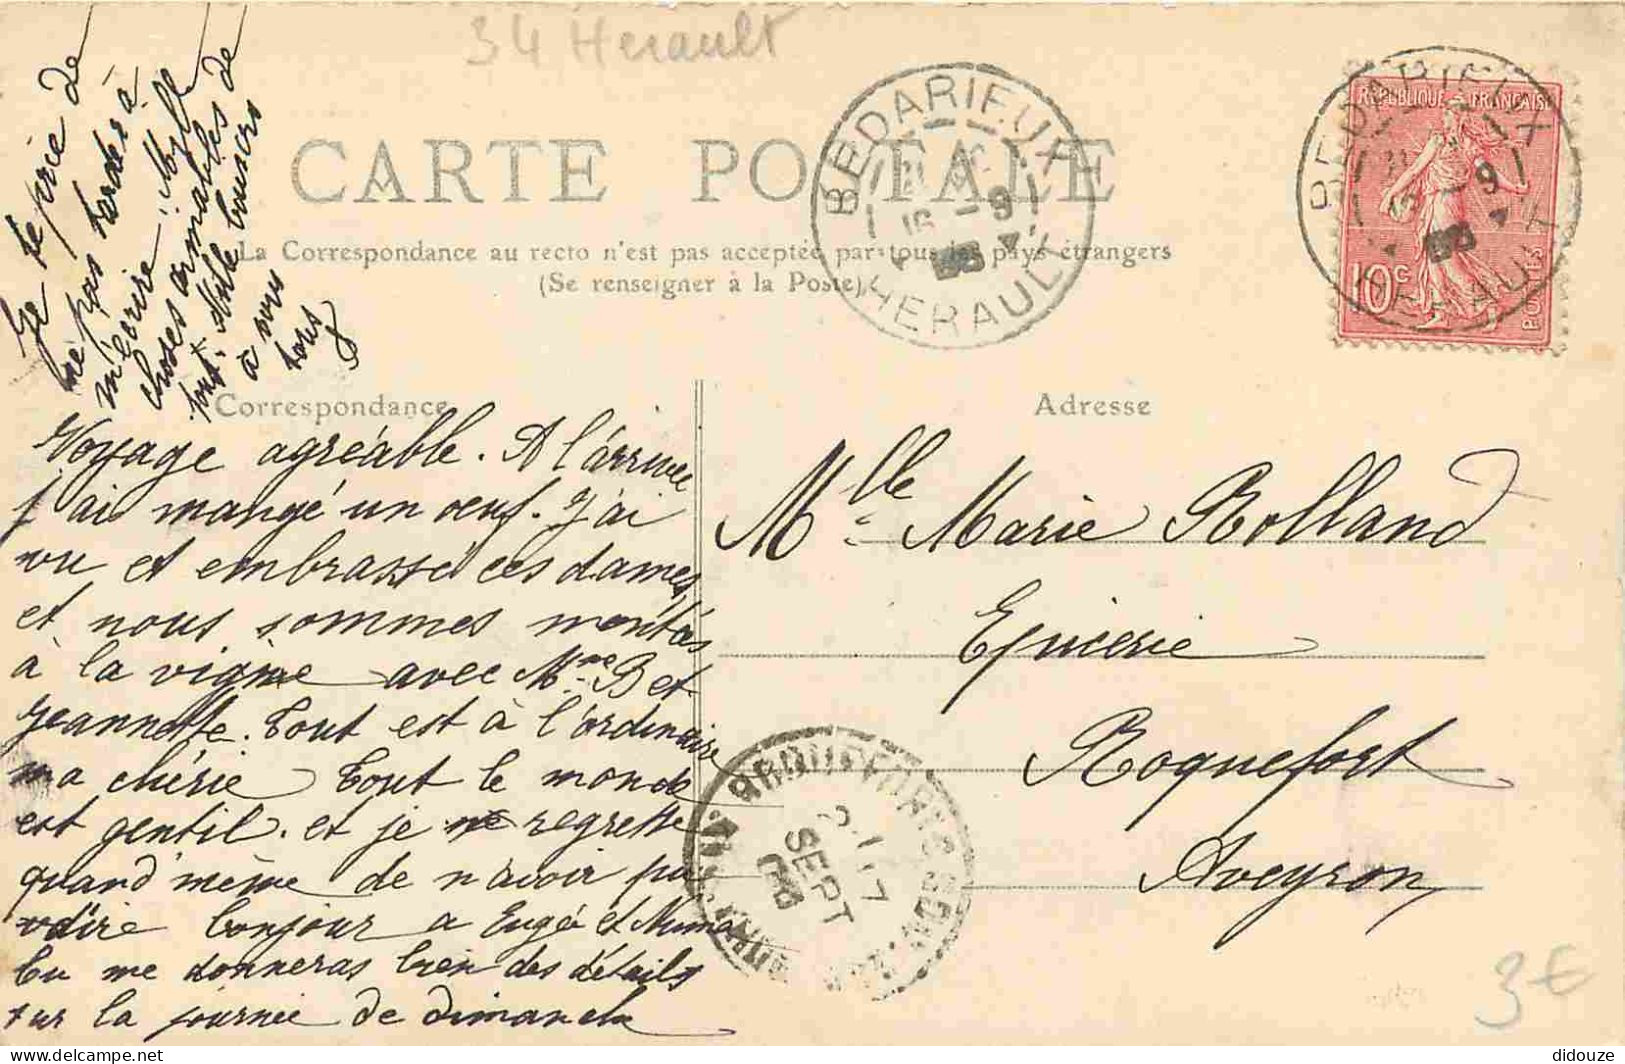 34 Herault
CARTE POSTALE
La Correspondance au recto n'est pas acceptée par tous les pays étrangers
(Se renseigner à la Poste)
BEDARIEUX
16 - 9
HERAULT
REPUBLIQUE FRANÇAISE
10c
POSTES
BEDARIEUX
16 - 9
HERAULT
Je te prie de
ne pas tarder à
m'écrire. Mille
choses aimables de
tout. Mille baisers
à vous
tous
Correspondance
Voyage agréable. A l'arrivée
j'ai mangé un œuf. J'ai
vu et embrassé ces dames,
et nous sommes montées
à la vigne avec Mme B et
Jeannette. Tout est à l'ordinaire
ma chérie Tout le monde
est gentil. et je regrette
quand même de n'avoir pu
dire bonjour a Eugé et Numa
Tu me donneras bien des détails
sur la journée de dimanche
Adresse
Mlle Marie Rolland
Epicerie
Roquefort
Aveyron
SEPT
3€
didouze